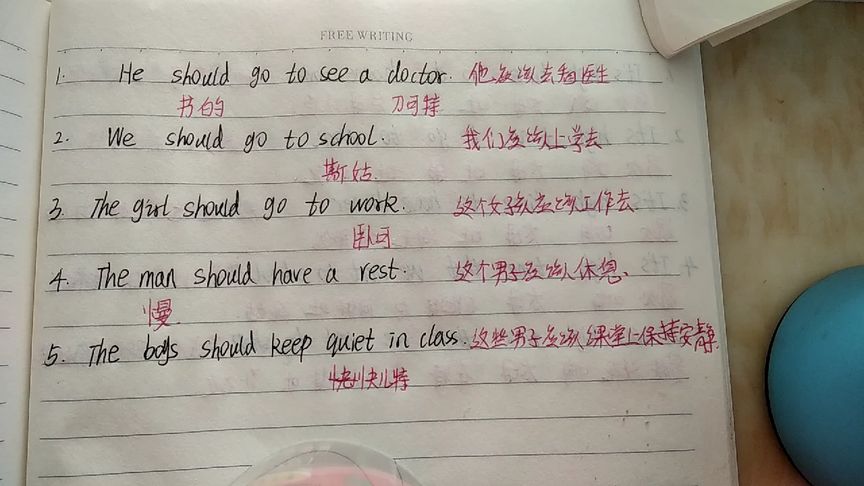 FREE WRITING
1. He should go to see a doctor. 他应该去看医生
书的 刀可特
2. We should go to school. 我们应该上学去
斯姑
3. The girl should go to work. 这个女孩应该工作去
卧可
4. The man should have a rest. 这个男子应该休息、
慢
5. The boys should keep quiet in class. 这些男子应该课堂上保持安静.
特